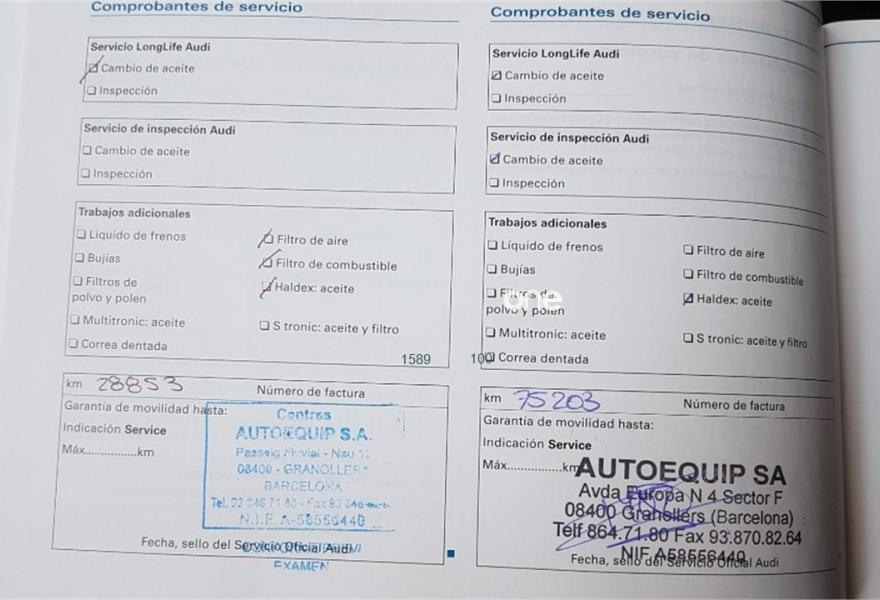 Comprobantes de servicio
Servicio LongLife Audi
Cambio de aceite
Inspección
Servicio de inspección Audi
Cambio de aceite
Inspección
Trabajos adicionales
Líquido de frenos
Filtro de aire
Bujías
Filtro de combustible
Filtros de
polvo y polen
Haldex: aceite
Multitronic: aceite
S tronic: aceite y filtro
Correa dentada
1589
km 28853
Número de factura
Garantía de movilidad hasta:
Indicación Service
Máx................km
Centres
AUTOEQUIP S.A.
Passeig Fluvial - Nau 12
08400 - GRANOLLERS
BARCELONA
N.I.F. A-58556440
Fecha, sello del Servicio Oficial Audi
EXAMEN
Comprobantes de servicio
Servicio LongLife Audi
Cambio de aceite
Inspección
Servicio de inspección Audi
Cambio de aceite
Inspección
Trabajos adicionales
Líquido de frenos
Filtro de aire
Bujías
Filtro de combustible
Filtros de
polvo y polen
one
Haldex: aceite
Multitronic: aceite
S tronic: aceite y filtro
100
Correa dentada
km 75203
Número de factura
Garantía de movilidad hasta:
Indicación Service
Máx................km
AUTOEQUIP SA
Avda Europa N 4 Sector F
08400 Granollers (Barcelona)
Telf 864.71.80 Fax 93.870.82.64
NIF A58556440
Fecha, sello del Servicio Oficial Audi